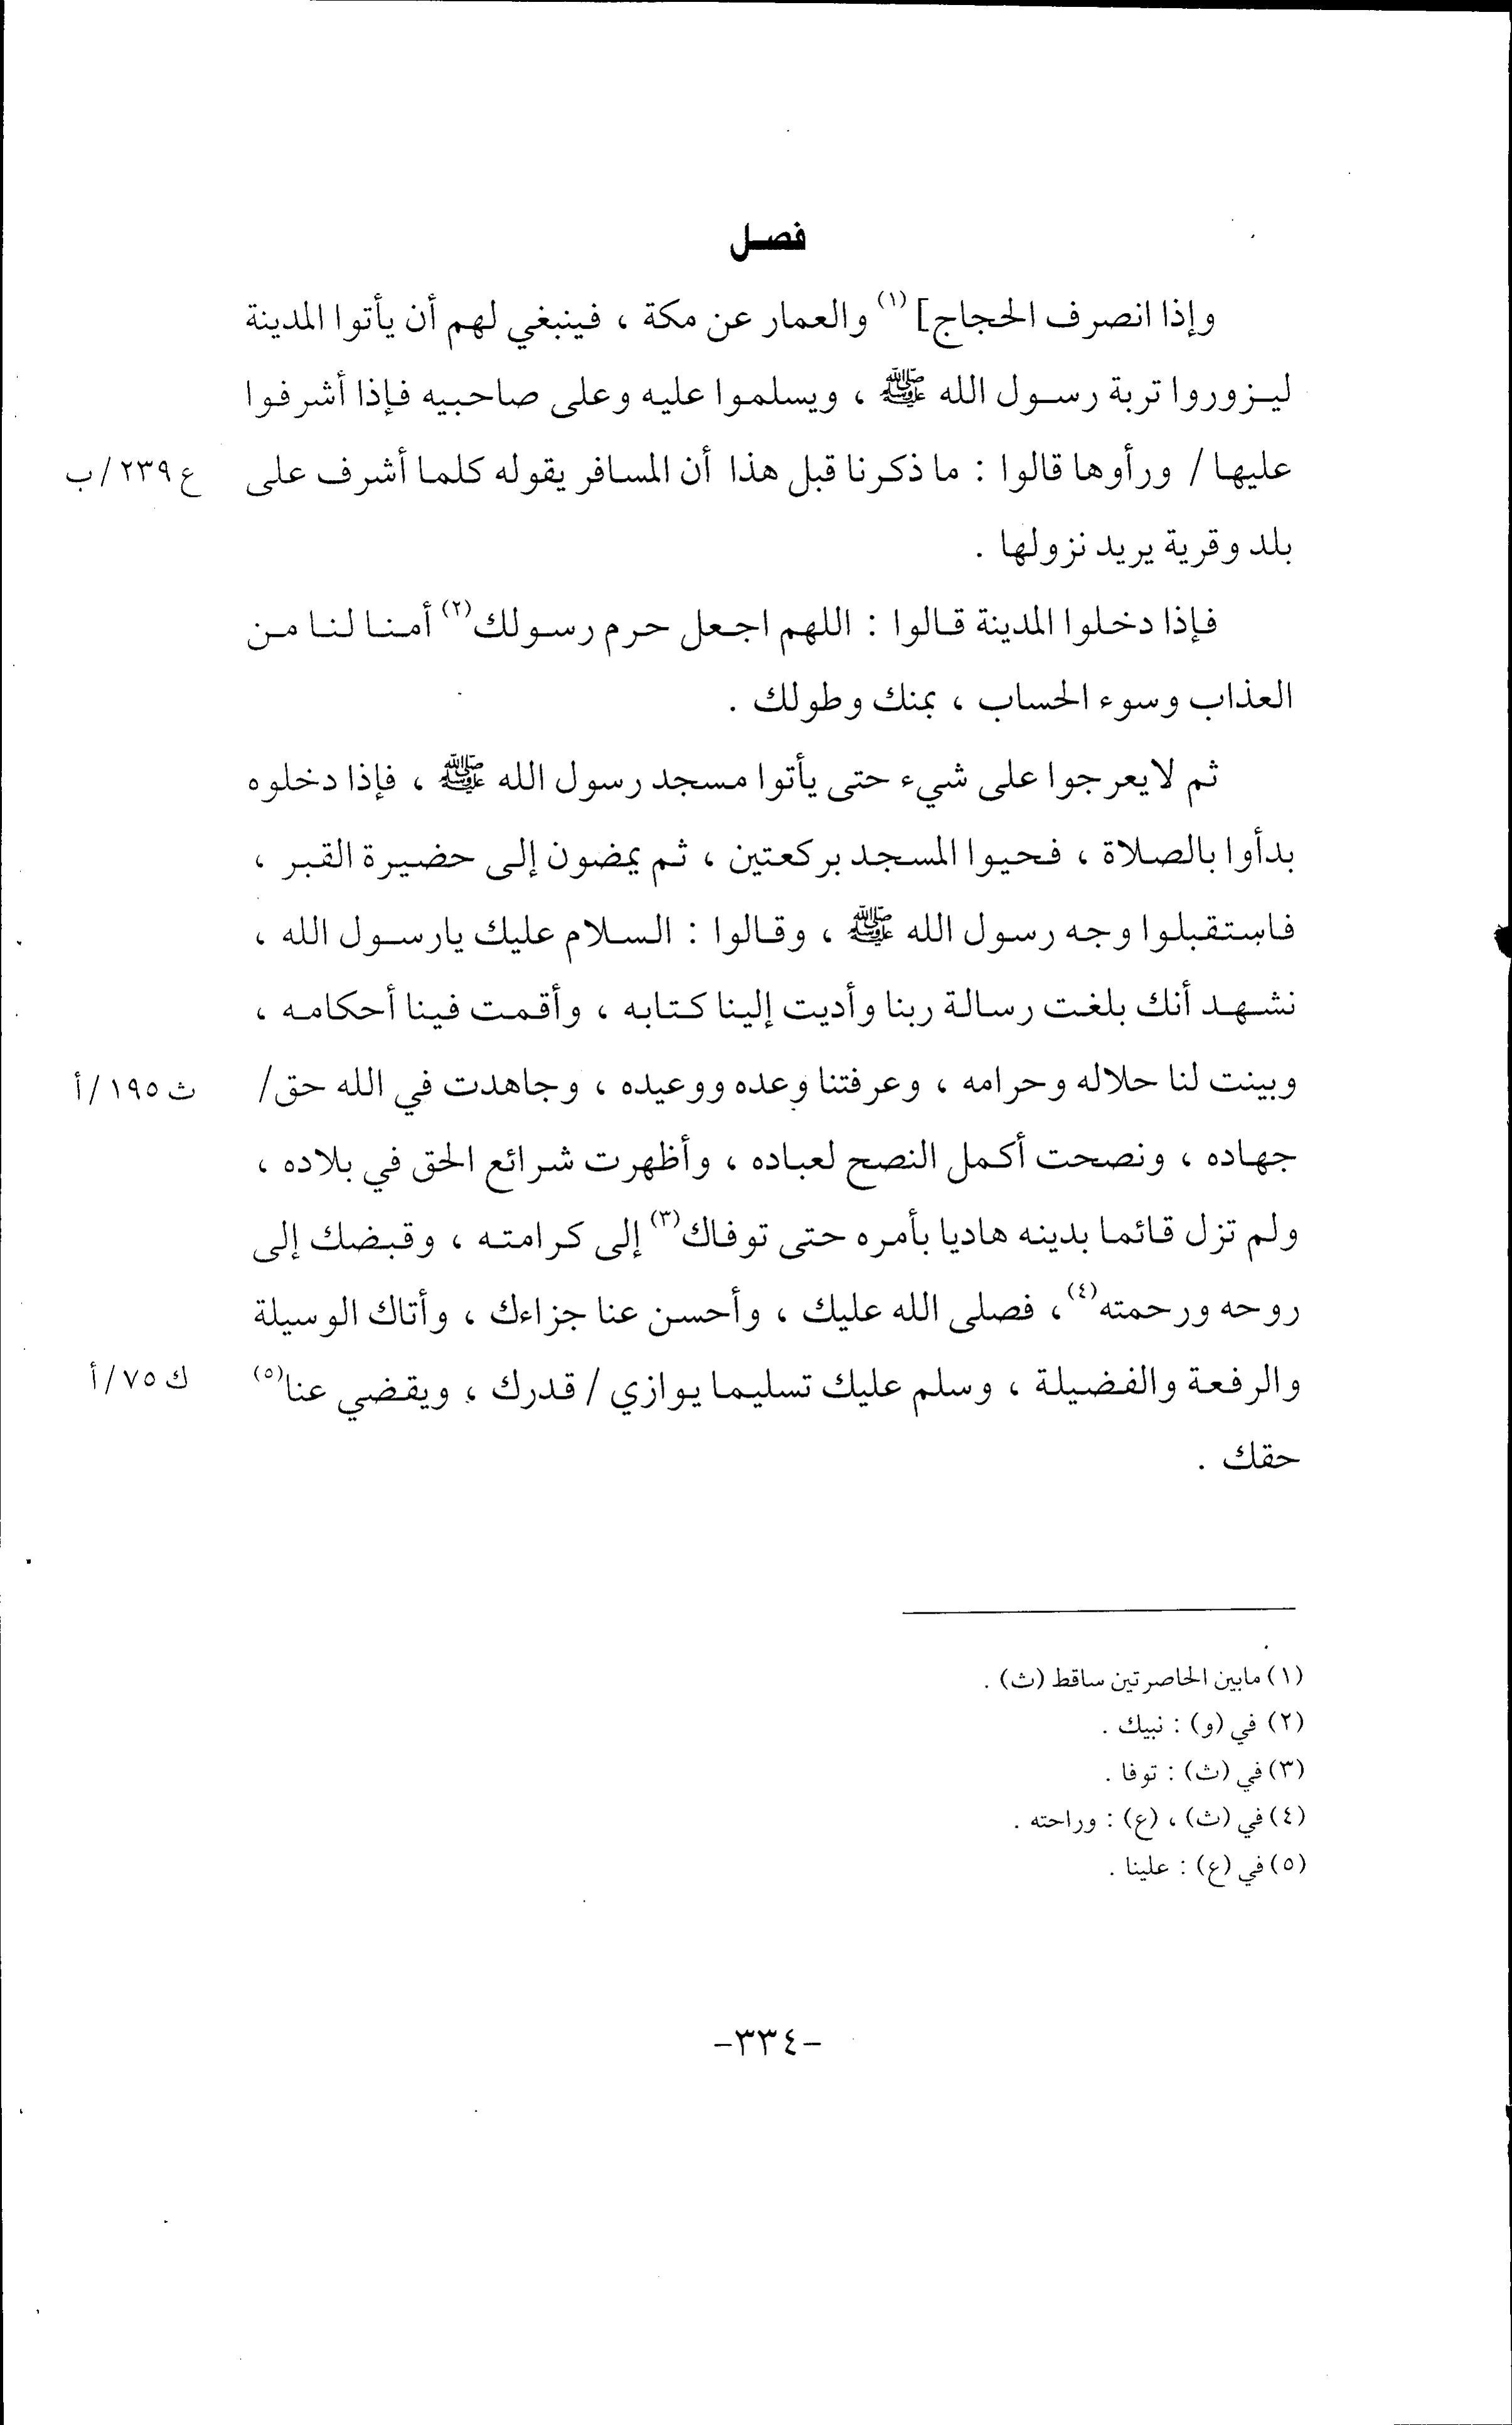 فصل
وإذا انصرف الحجاج] (١) والعمار عن مكة ، فينبغي لهم أن يأتوا المدينة
ليزوروا تربة رسول الله ﷺ ، ويسلموا عليه وعلى صاحبيه فإذا أشرفوا
عليها / ورأوها قالوا : ما ذكرنا قبل هذا أن المسافر يقوله كلما أشرف على ع ٢٣٩ /ب
بلد وقرية يريد نزولها .
فإذا دخلوا المدينة قالوا : اللهم اجعل حرم رسولك (٢) أمنا لنا من
العذاب وسوء الحساب ، بمنك وطولك .
ثم لايعرجوا على شيء حتى يأتوا مسجد رسول الله ﷺ ، فإذا دخلوه
بدأوا بالصلاة ، فحيوا المسجد بركعتين ، ثم يمضون إلى حضيرة القبر ،
فاستقبلوا وجه رسول الله ﷺ ، وقالوا : السلام عليك يارسول الله ،
نشهد أنك بلغت رسالة ربنا وأديت إلينا كتابه ، وأقمت فينا أحكامه ،
وبينت لنا حلاله وحرامه ، وعرفتنا وعده ووعيده ، وجاهدت في الله حق/ ث ١٩٥ /أ
جهاده ، ونصحت أكمل النصح لعباده ، وأظهرت شرائع الحق في بلاده ،
ولم تزل قائما بدينه هاديا بأمره حتى توفاك (٣) إلى كرامته ، وقبضك إلى
روحه ورحمته (٤) ، فصلى الله عليك ، وأحسن عنا جزاءك ، وأتاك الوسيلة
والرفعة والفضيلة ، وسلم عليك تسليما يوازي / قدرك ، ويقضي عنا (٥) ك ٧٥ /أ
حقك .
(١) مابين الحاصرتين ساقط (ث) .
(٢) في (و) : نبيك .
(٣) في (ث) : توفا .
(٤) في (ث) ، (ع) : وراحته .
(٥) في (ع) : علينا .
-٣٣٤-